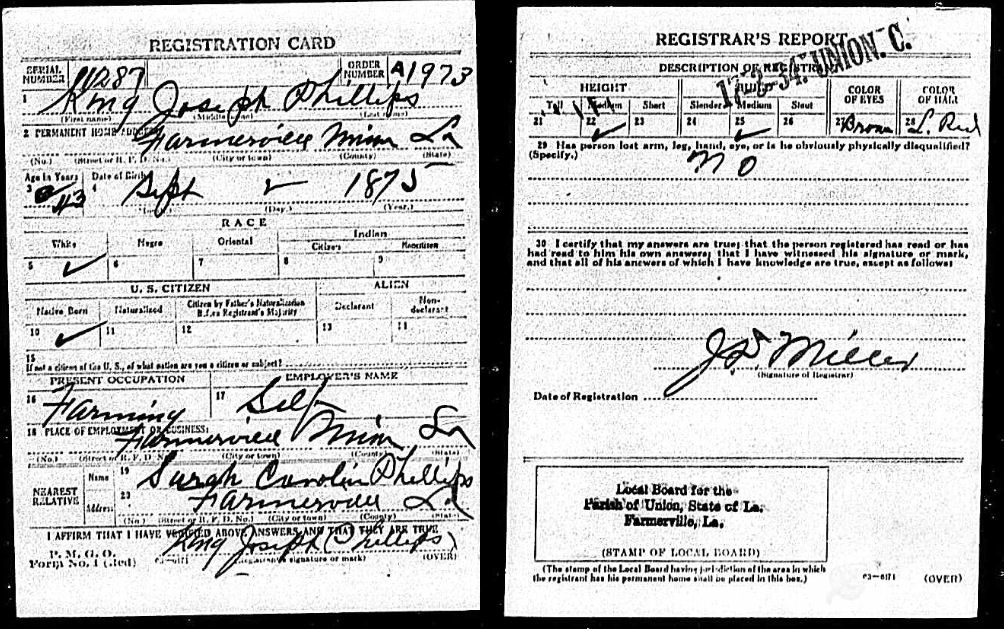 REGISTRATION CARD
SERIAL NUMBER 11287 ORDER NUMBER A1973
1 King Joseph Phillips
(First name) (Middle name) (Last name)
2 PERMANENT HOME ADDRESS:
Farmerville Union La
(No.) (Street or R. F. D. No.) (City or town) (County) (State)
Age in Years Date of Birth
3 43 4 Sept 2 1875
(Month.) (Day.) (Year.)
RACE
White Negro Oriental Indian
Citizen Noncitizen
5 ✓ 6 7 8 9
U. S. CITIZEN ALIEN
Native Born Naturalized Citizen by Father's Naturalization Before Registrant's Majority Declarant Non-declarant
10 ✓ 11 12 13 14
15
If not a citizen of the U. S., of what nation are you a citizen or subject?
PRESENT OCCUPATION EMPLOYER'S NAME
16 Farming 17 Self
18 PLACE OF EMPLOYMENT OR BUSINESS:
Farmerville Union La
(No.) (Street or R. F. D. No.) (City or town) (County) (State)
NEAREST RELATIVE
Name 19 Sarah Carolin Phillips
Address 20 Farmerville La
(No.) (Street or R. F. D. No.) (City or town) (County) (State)
I AFFIRM THAT I HAVE VERIFIED ABOVE ANSWERS AND THAT THEY ARE TRUE
King Joseph Phillips
P. M. G. O.
Form No. 1 (Red) 03—6171 (Registrant's signature or mark) (OVER)
REGISTRAR'S REPORT
17-2-34. UNION. C.
DESCRIPTION OF REGISTRANT
HEIGHT BUILD COLOR OF EYES COLOR OF HAIR
Tall Medium Short Slender Medium Stout
21 22 ✓ 23 24 25 ✓ 26 27 Brown 28 L. Red
29 Has person lost arm, leg, hand, eye, or is he obviously physically disqualified?
(Specify.) no
30 I certify that my answers are true; that the person registered has read or has
had read to him his own answers; that I have witnessed his signature or mark,
and that all of his answers of which I have knowledge are true, except as follows:
Miller
(Signature of Registrar)
Date of Registration
Local Board for the
Parish of Union, State of La.
Farmerville, La.
(STAMP OF LOCAL BOARD)
(The stamp of the Local Board having jurisdiction of the area in which
the registrant has his permanent home shall be placed in this box.) 03—6171 (OVER)